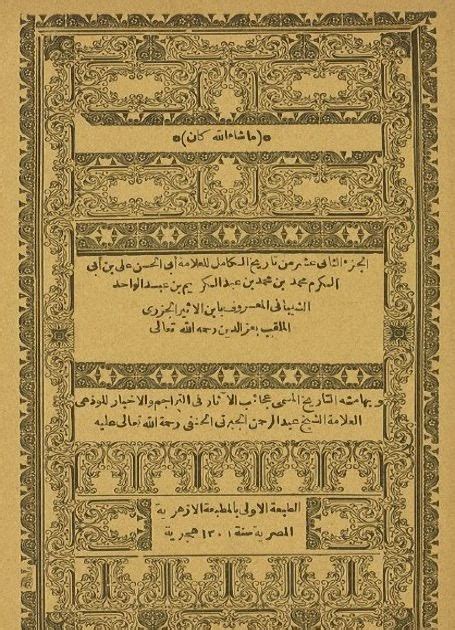 (ما شاء الله كان)
الجزء الثاني عشر من تاريخ الكامل للعلامة أبي الحسن علي بن أبي
المكرم محمد بن محمد بن عبد الكريم بن عبد الواحد
الشيباني المعروف بابن الاثير الجزري
الملقب بعز الدين رحمه الله تعالى
وبهامشه التاريخ المسمى عجائب الا ثار في التراجم والاخبار للوذعي
العلامة الشيخ عبد الرحمن الجبرتي الحنفي رحمة الله تعالى عليه
الطبعة الاولى بالمطبعة الازهرية
المصرية سنة ١٣٠١ هجرية